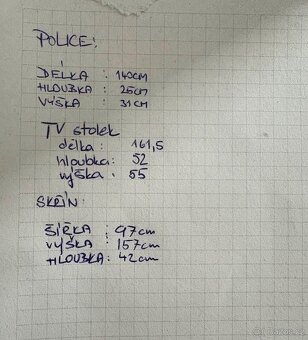 POLICE:
DÉLKA : 140cm
HLOUBKA : 25cm
VÝŠKA : 31cm
TV stolek
délka : 161,5
hloubka: 52
výška : 55
SKŘÍN:
ŠÍŘKA : 97cm
VÝŠKA : 157cm
HLOUBKA: 42cm